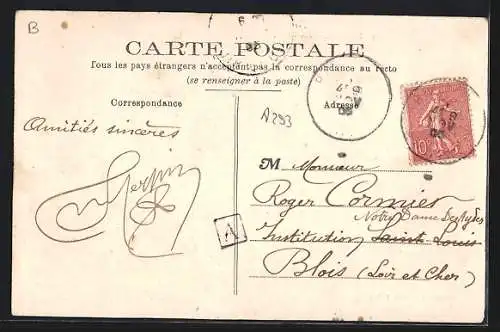 B
CARTE POSTALE
Tous les pays étrangers n'acceptent pas la correspondance au recto
(se renseigner à la poste)
Correspondance
Adresse
A293
Amitiés sincères
M Monsieur
Roger Cormier
Notre Dame des Aydes
Institution Saint Louis
Blois (Loir et Cher)
A
10